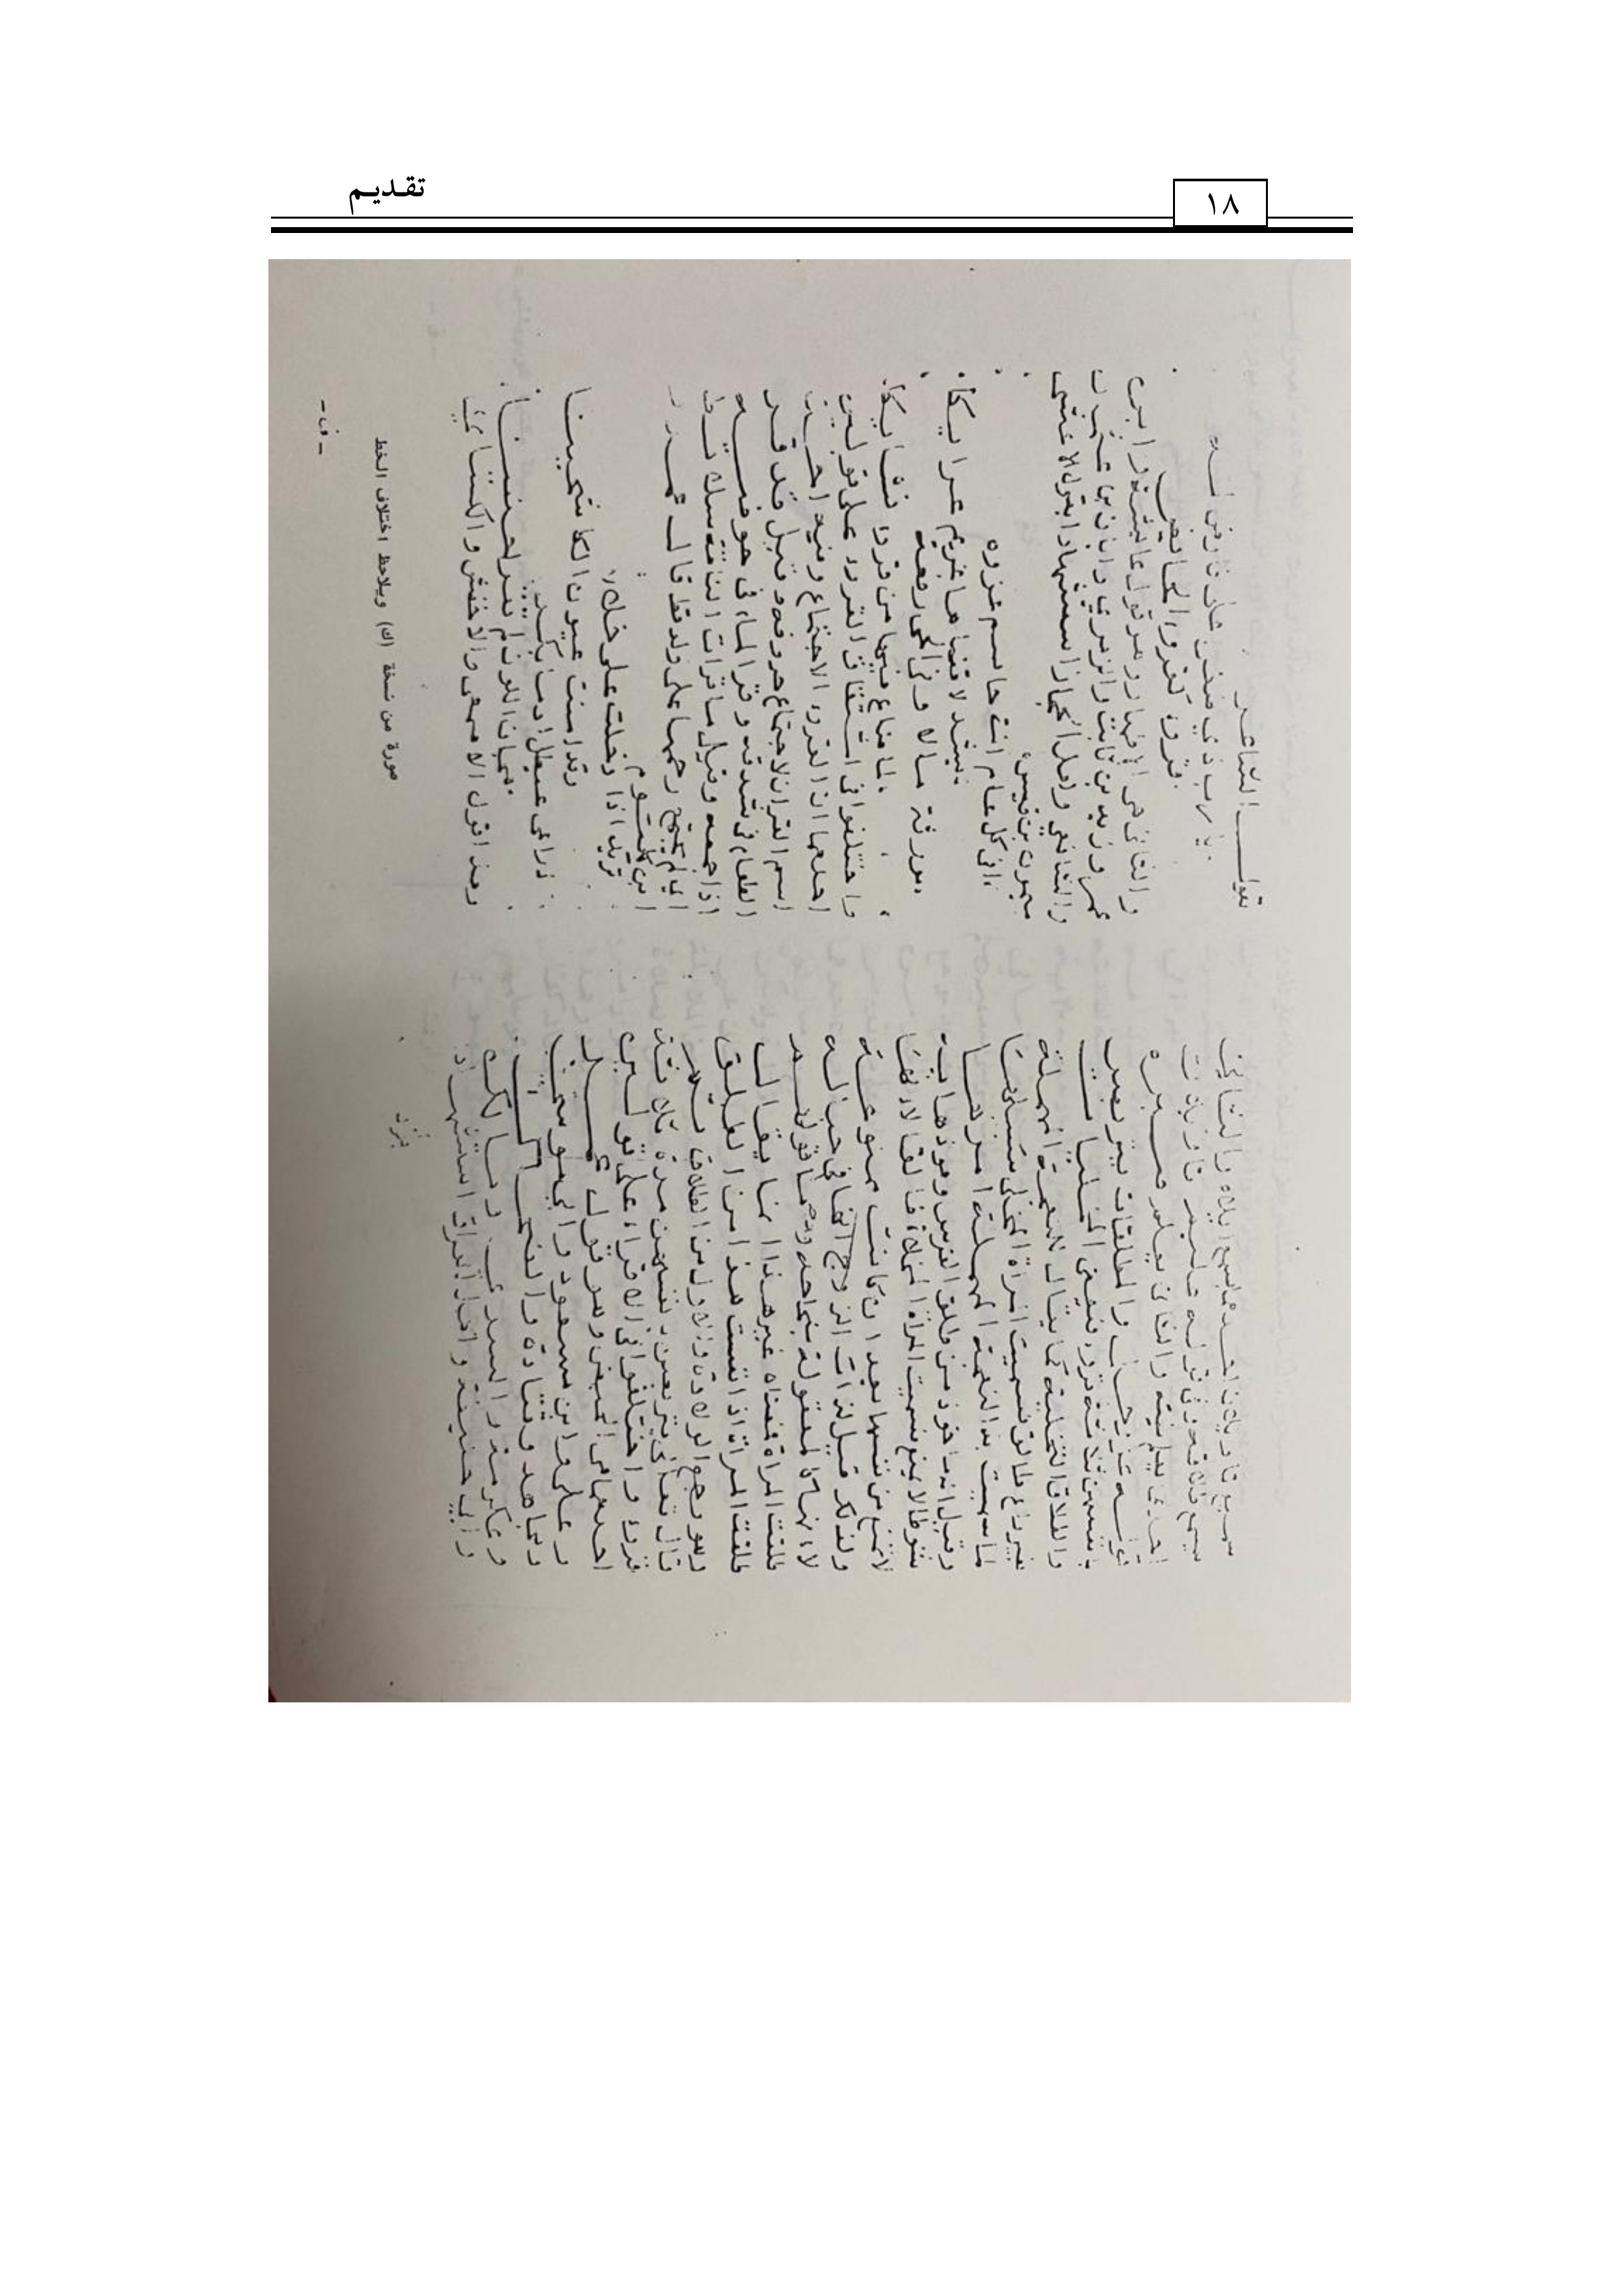 ١٨
تقديم
احدهما عليم بنيته والثاني عليم بصبره
قوله عز وجل والمطلقات يتربصن
بانفسهن ثلاثة قروء يعني المخليات
والطلاق التخلية كما يقال للنعجة المهملة
بغير راع طالق فسميت المراة المخلى سبيلها
بما سميت به النعجة المهملة امرها
وقيل انه ماخوذ من طلق الفرس وهو ذهابه
شوطا لا يمنع فسميت المراة المخلاة طالقا لانها
لا تمنع من نفسها بعد ان كانت ممنوعة
ولذلك قيل لذات الزوج انها في حباله
لانها كالمعقولة
طلقت المراة فمعناه غير هذا انما يقال
طلقت المراة اذا نفست هذا من الطلق
وهو وجع الولادة والاول من الطلاق ثم
قال تعالى يتربصن بانفسهن مدة ثلاثة
قروء واختلفوا في الاقراء على قولين
احدهما هي الحيض وهو قول عمر
وعلي وابن مسعود وابي موسى
ومجاهد وقتادة والضحاك
وعكرمة والسدي ومالك
وابي حنيفة واهل العراق استشهادا
قول الشاعر
يا رب ذي ضغن علي فارض له
قروء كقروء الحائض
والثاني هي الاطهار وهو قول عائشة وابن
عمر وزيد بن ثابت والزهري وابان بن عثمان
والشافعي واهل الحجاز استشهادا بقول الاعشى
ميمون بن قيس
افي كل عام انت جاشم غزوه
تشد لاقصاها عزيم عزايكا
مورثة مالا وفي الحي رفعة
لما ضاع فيها من قروء نسايكا
واختلفوا في اشتقاق القروء على قولين
احدهما ان القروء الاجتماع ومنه اخذ
اسم القران لاجتماع حروفه وقيل قد قرا
الطعام في شدقه وقرا الماء في حوضه
اذا جمعه وقيل ما قرات الناقة سلا قط
اي لم يجتمع رحمها على ولد قط قال عمرو
ابن كلثوم
تريك اذا دخلت على خلاء
وقد امنت عيون الكاشحينا
ذراعي عيطل ادماء بكر
هجان اللون لم تقرا جنينا
وهذا قول الاصمعي والاخفش والكسائي
صورة من نسخة (ك) ويلاحظ اختلاف الخط
- ف -